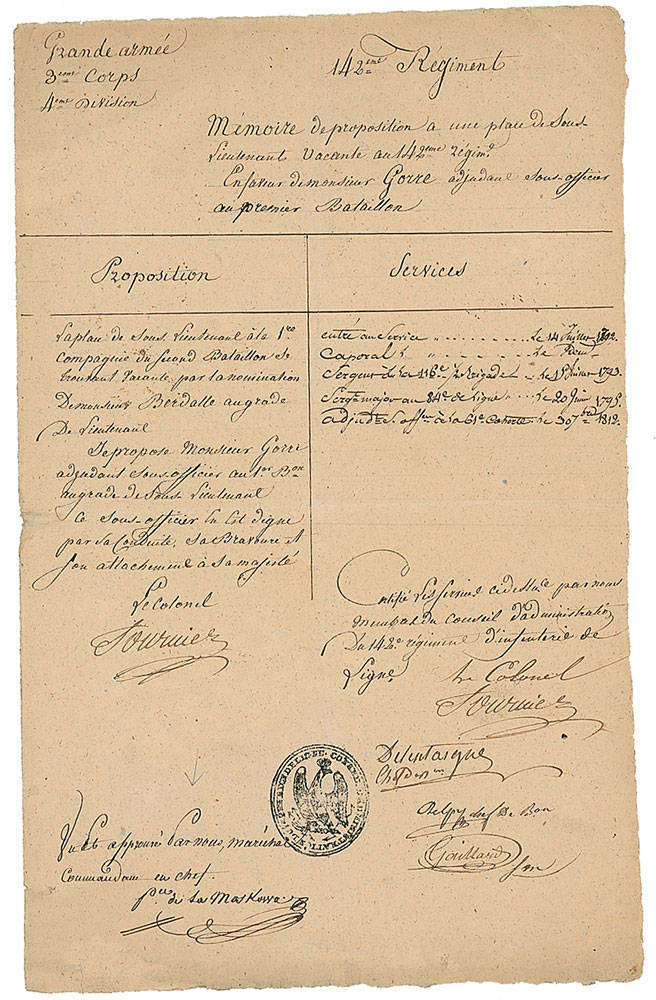 Grande armée
3eme Corps
4eme Division
142eme Régiment
Mémoire de proposition a une place de Sous-
Lieutenant Vacante au 142eme Régimt
En faveur de monsieur Gorre adjudant Sous-officier
au premier Bataillon
Proposition
Services
La place de Sous Lieutenant à la 1re
Compagnie du Second Bataillon Se
trouvant Vacante par la nomination
De monsieur Berdalle au grade
De Lieutenant
Je propose Monsieur Gorre
adjudant sous-officier au 1er Bon
au grade de Sous Lieutenant
Ce sous-officier En Est digne
par Sa Conduite, Sa Bravoure et
Son attachement à Sa majesté
Le Colonel
Fournier
entré au Service Le 14 Juillet 1792.
Caporal Le
Sergent de la 116e 1/2 Brigade Le 15 1793
Sergt major au 84e de Ligne Le 20 Juin 1795
adjudt S. offer à la 61e Cohorte Le 30 7bre 1812
Certifié Les Services ci dessus par nous
membres du Conseil d'administration
Du 142e régiment d'infanterie de
Ligne
Le Colonel
Fournier
Chef de Bon
chef De Bon
Gaillard
CONSEIL D'ADMINISTRAT
Vu Et approuvé Par nous, maréchal
Commandant en chef
Pce de La Moskowa